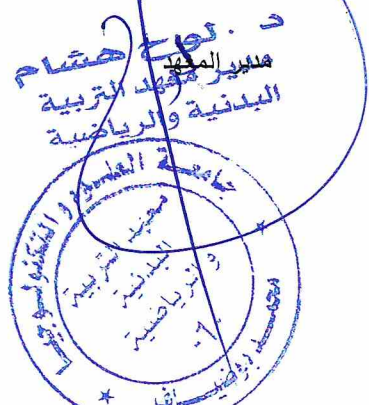 د. لوح هشام
مدير المعهد
مدير معهد التربية
البدنية والرياضية
جامعة العلوم و التكنولوجيا
محمد بوضياف
معهد التربية
البدنية
و الرياضية